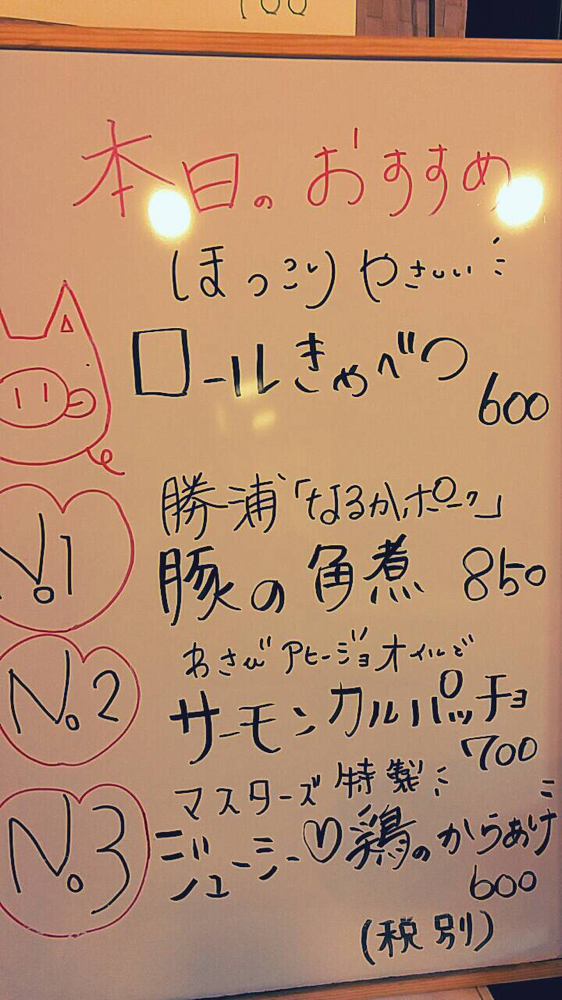 本日のおすすめ
ほっこりやさしい
ロールきゃべつ
600
No.1
勝浦「なるかポーク」
豚の角煮 850
No.2
わさびアヒージョオイルで
サーモンカルパッチョ
700
No.3
マスターズ特製
ジューシー♡鶏のからあげ
600
(税別)